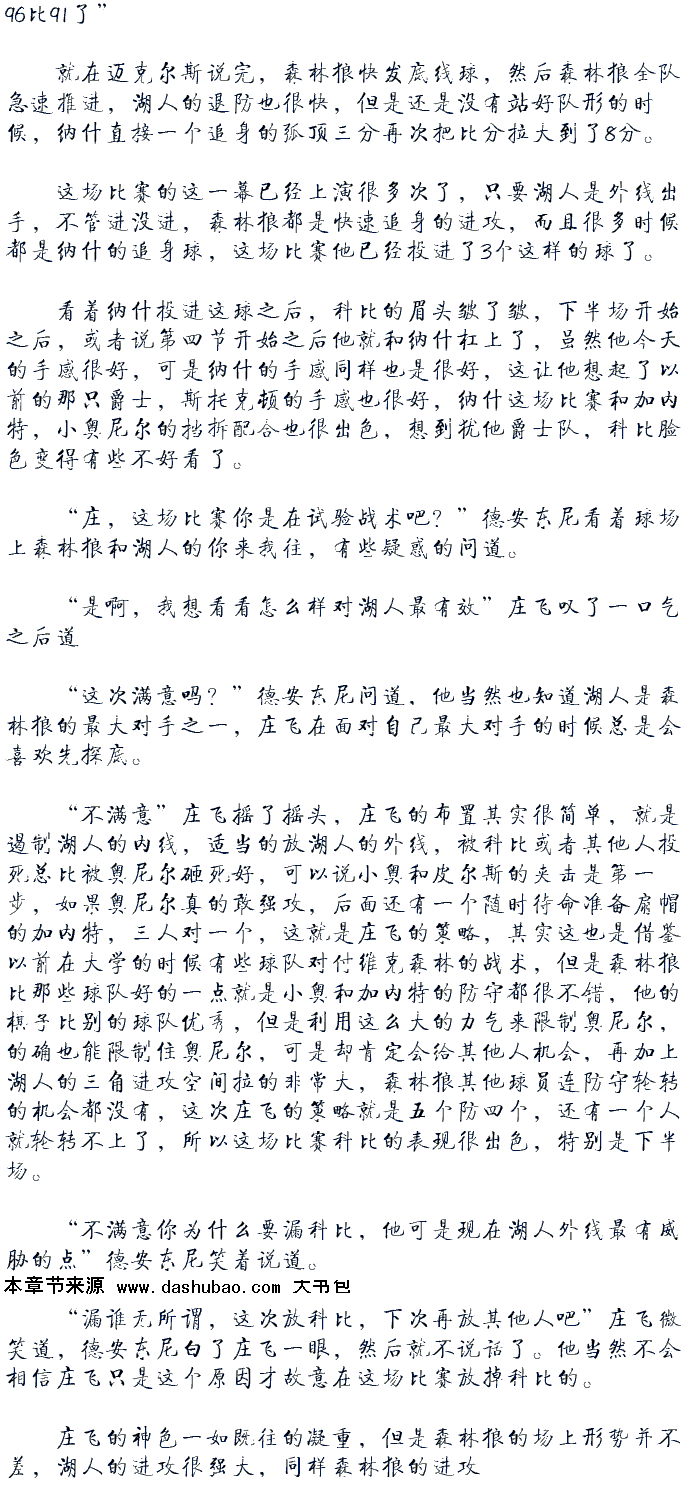 96比91了”
就在迈克尔斯说完，森林狼快发底线球，然后森林狼全队
急速推进，湖人的退防也很快，但是还是没有站好队形的时
候，纳什直接一个追身的弧顶三分再次把比分拉大到了8分。
这场比赛的这一幕已经上演很多次了，只要湖人是外线出
手，不管进没进，森林狼都是快速追身的进攻，而且很多时候
都是纳什的追身球，这场比赛他已经投进了3个这样的球了。
看着纳什投进这球之后，科比的眉头皱了皱，下半场开始
之后，或者说第四节开始之后他就和纳什杠上了，虽然他今天
的手感很好，可是纳什的手感同样也是很好，这让他想起了以
前的那只爵士，斯托克顿的手感也很好，纳什这场比赛和加内
特，小奥尼尔的挡拆配合也很出色，想到犹他爵士队，科比脸
色变得有些不好看了。
“庄，这场比赛你是在试验战术吧？”德安东尼看着球场
上森林狼和湖人的你来我往，有些疑惑的问道。
“是啊，我想看看怎么样对湖人最有效”庄飞叹了一口气
之后道
“这次满意吗？”德安东尼问道，他当然也知道湖人是森
林狼的最大对手之一，庄飞在面对自己最大对手的时候总是会
喜欢先探底。
“不满意”庄飞摇了摇头，庄飞的布置其实很简单，就是
遏制湖人的内线，适当的放湖人的外线，被科比或者其他人投
死总比被奥尼尔砸死好，可以说小奥和皮尔斯的夹击是第一
步，如果奥尼尔真的敢强攻，后面还有一个随时待命准备扇帽
的加内特，三人对一个，这就是庄飞的策略，其实这也是借鉴
以前在大学的时候有些球队对付维克森林的战术，但是森林狼
比那些球队好的一点就是小奥和加内特的防守都很不错，他的
棋子比别的球队优秀，但是利用这么大的力气来限制奥尼尔，
的确也能限制住奥尼尔，可是却肯定会给其他人机会，再加上
湖人的三角进攻空间拉的非常大，森林狼其他球员连防守轮转
的机会都没有，这次庄飞的策略就是五个防四个，还有一个人
就轮转不上了，所以这场比赛科比的表现很出色，特别是下半
场。
“不满意你为什么要漏科比，他可是现在湖人外线最有威
胁的点”德安东尼笑着说道。
本章节来源 www.dashubao.com 大书包
“漏谁无所谓，这次放科比，下次再放其他人吧”庄飞微
笑道，德安东尼白了庄飞一眼，然后就不说话了。他当然不会
相信庄飞只是这个原因才故意在这场比赛放掉科比的。
庄飞的神色一如既往的凝重，但是森林狼的场上形势并不
差，湖人的进攻很强大，同样森林狼的进攻